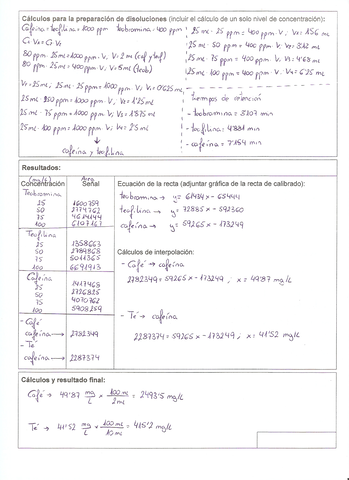 Cálculos para la preparación de disoluciones (incluir el cálculo de un solo nivel de concentración):
Cafeína = teofilina = 1000 ppm teobromina = 400 ppm
C1 V1 = C2 V2
80 ppm · 25 mL = 1000 ppm · V1 V1 = 2 mL (caf y teof)
80 ppm · 25 mL = 400 ppm · V1 V1 = 5 mL (teob)
V2 = 25 mL; 25 mL · 25 ppm = 1000 ppm · V1 V1 = 0'625 mL
25 mL · 50 ppm = 1000 ppm · V1 V1 = 1'25 mL
25 mL · 75 ppm = 1000 ppm · V1 V1 = 1'875 mL
25 mL · 100 ppm = 1000 ppm · V1 V1 = 2'5
↓
cafeína y teofilina
25 mL · 25 ppm = 400 ppm · V1 V1 = 1'56 mL
25 mL · 50 ppm = 400 ppm · V1 V1 = 3'12 mL
25 mL · 75 ppm = 400 ppm · V1 V1 = 4'68 mL
25 mL · 100 ppm = 400 ppm · V1 V1 = 6'25 mL
tiempos de retención
- teobromina = 3'107 min
- teofilina = 4'881 min
- cafeína = 7'154 min
Resultados:
(mg/L) Área
Concentración Señal
Teobromina
25 1600759
50 2774762
75
100 6107167
Teofilina
25 1358663
50 2789868
75 5011365
100 6691913
Cafeína
25 1417468
50 2726825
75 4070762
100 5908259
- Café
cafeína → 2782349
- Té
cafeína → 2287374
Ecuación de la recta (adjuntar gráfica de la recta de calibrado):
teobromina → y = 61434x - 65441
teofilina → y = 72885x - 592360
cafeína → y = 59265x - 173249
Cálculos de interpolación:
- Café → cafeína
2782349 = 59265x - 173249; x = 49'87 mg/L
- Té → cafeína
2287374 = 59265x - 173249; x = 41'52 mg/L
Cálculos y resultado final:
Café → 49'87 mg/L × 100 mL/2 mL = 2493'5 mg/L
Té → 41'52 mg/L × 100 mL/10 mL = 415'2 mg/L